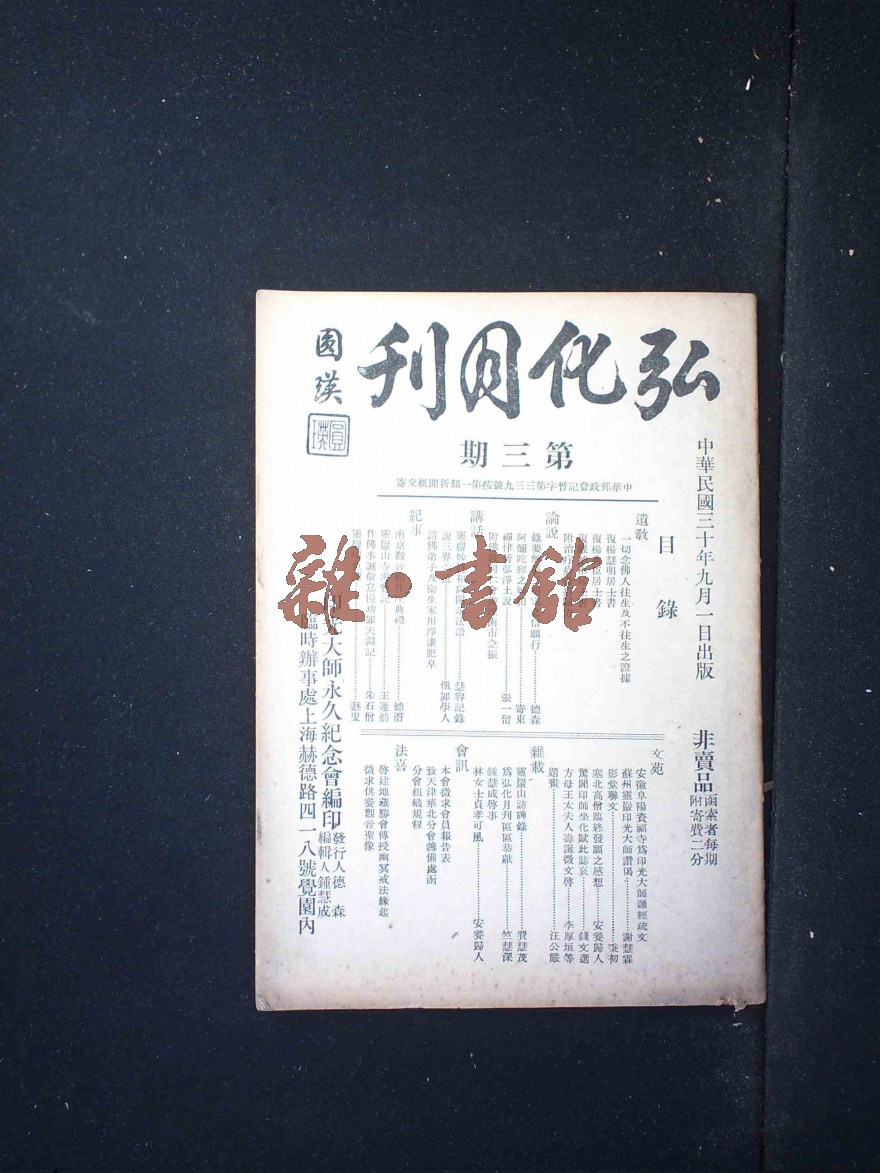 弘化月刊
圓瑛
圓瑛
第三期
中華郵政登記暫字第三三九號按第一類新聞紙交寄
中華民國三十年九月一日出版
非賣品
函索者每期
附寄費二分
目錄
遺教
一切念佛人往生及不往生之證據
復楊慧明居士書
復楊
居士書
附治
論說
錄要
信願行 德森
阿彌陀經之
寄東
禪律皆弘淨土說 張一留
附佛
南市急振
講話
靈巖
法語 慧容記錄
說三界
懺罪學人
訪佛弟子及衛生家用淨素肥皂
紀事
南京觀音
典禮 德潛
靈巖山寺
記 王蓮舫
作佛事誠敬怠慢功罪天淵記 朱石僧
靈巖
遯叟
文苑
安徽阜陽資福寺為印光大師誦經疏文
蘇州靈巖印光大師讚偈 謝慧霖
影堂聯文 乘初
塞北高僧臨終發願之感想 安養歸人
驚聞印師坐化賦此誌哀 錢文選
方母王太夫人壽誕徵文啓 李厚垣等
題畫 汪公嚴
雜載
靈巖山訪碑錄 費慧茂
為弘化月刊區區恭獻 竺慧深
鍾慧成啓事
林女士貞孝可風 安養歸人
會訊
本會徵求會員報告表
致天津華北分會籌備處函
分會組織規程
法喜
啓建地藏勝會傳授幽冥戒法緣起
徵求供養觀音聖像
印光大師永久紀念會編印
臨時辦事處上海赫德路四一八號覺園內
發行人德森
編輯人鍾慧成
雜·書館